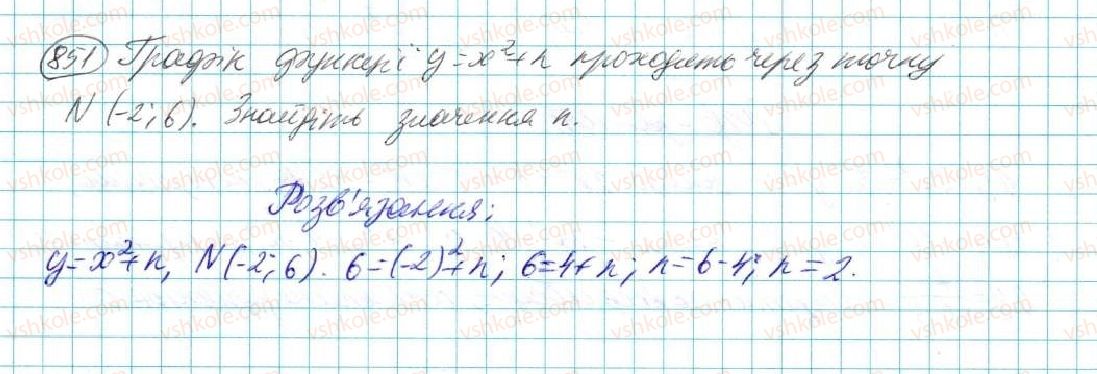 851 Графік функції y=x²+n проходить через точку
N (-2; 6). Знайдіть значення n.
Розв'язання:
y=x²+n, N(-2; 6). 6=(-2)²+n; 6=4+n; n=6-4; n=2.